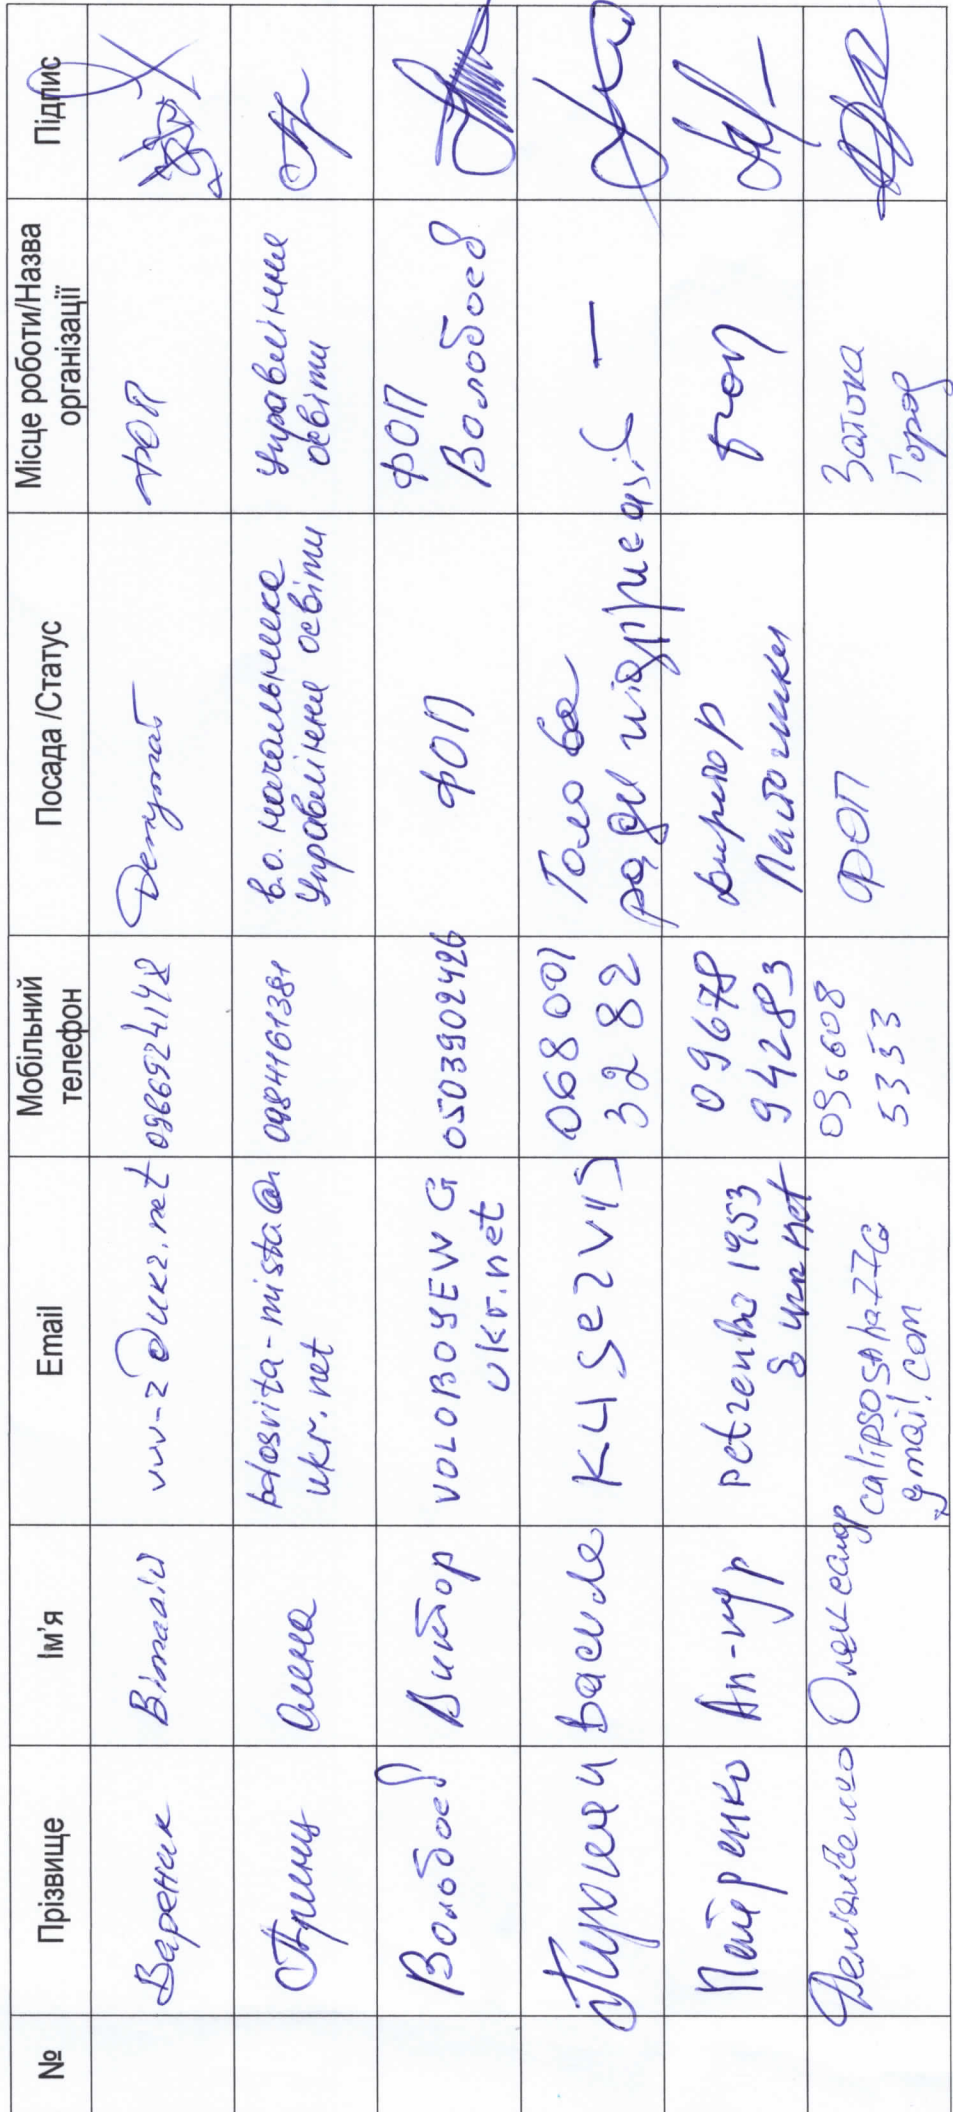 № Прізвище Ім'я Email Мобільний телефон Посада /Статус Місце роботи/Назва організації Підпис
Вареник Віталій vvv-z@ukr.net 0966924148 Депутат ФОП
Принц Олена
osvita-mista@
ukr.net
0984161381
в.о. начальника
Управління освіти
Управління
освіти
Волобоєв Виктор
VOLOBOYEVV@
ukr.net
0503902426
ФОП
ФОП
Волобоев
Василь
068 001
32 82
Голова
ради
—
Петренко
petrenko1953
@ ukr net
09678
94283
Директор
ФОП
Олександр
gmail.com
096608
5333
ФОП
Затока
Город